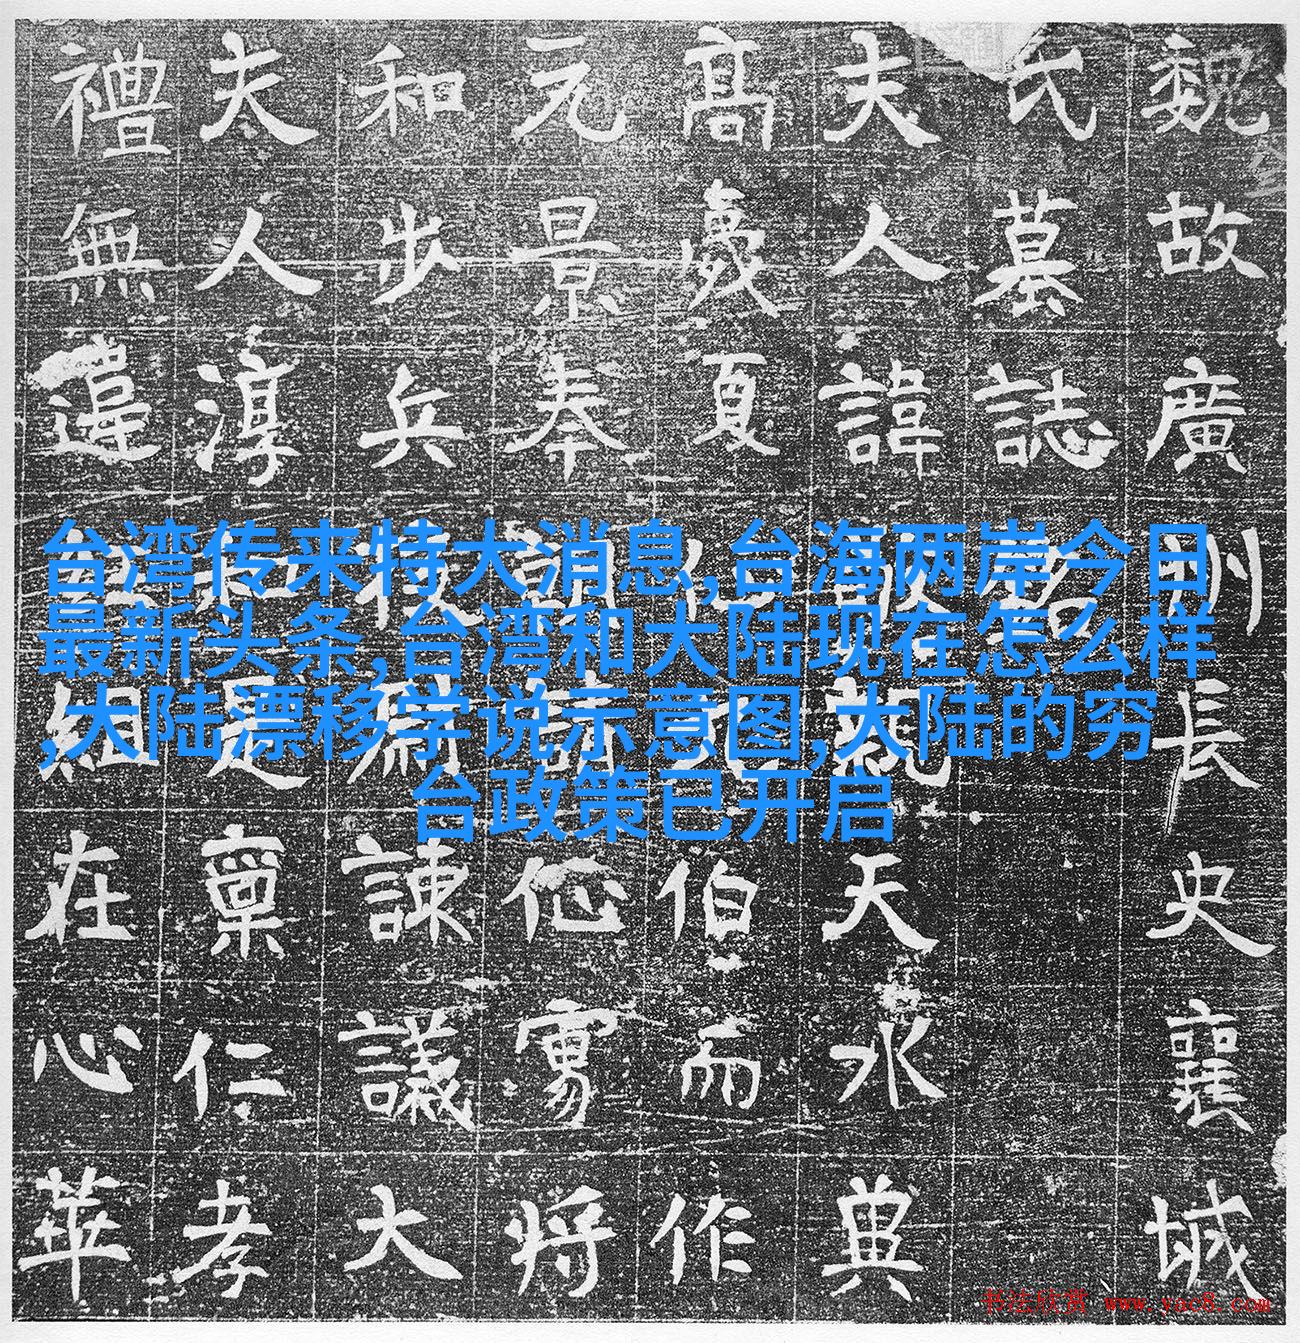 台湾传来特大消息,台海两岸今日
最新头条,台湾和大陆现在怎么样
,大陆漂移学说示意图,大陆的穷
台政策已开启
魏故廣長史襄城
氏墓誌
夫人諱親天水典
高夏伯而作
元景奉将
和步兵諫議大
夫人淳和是稟仁孝
禮無違組在心華
书法欣赏 www.yac8.com